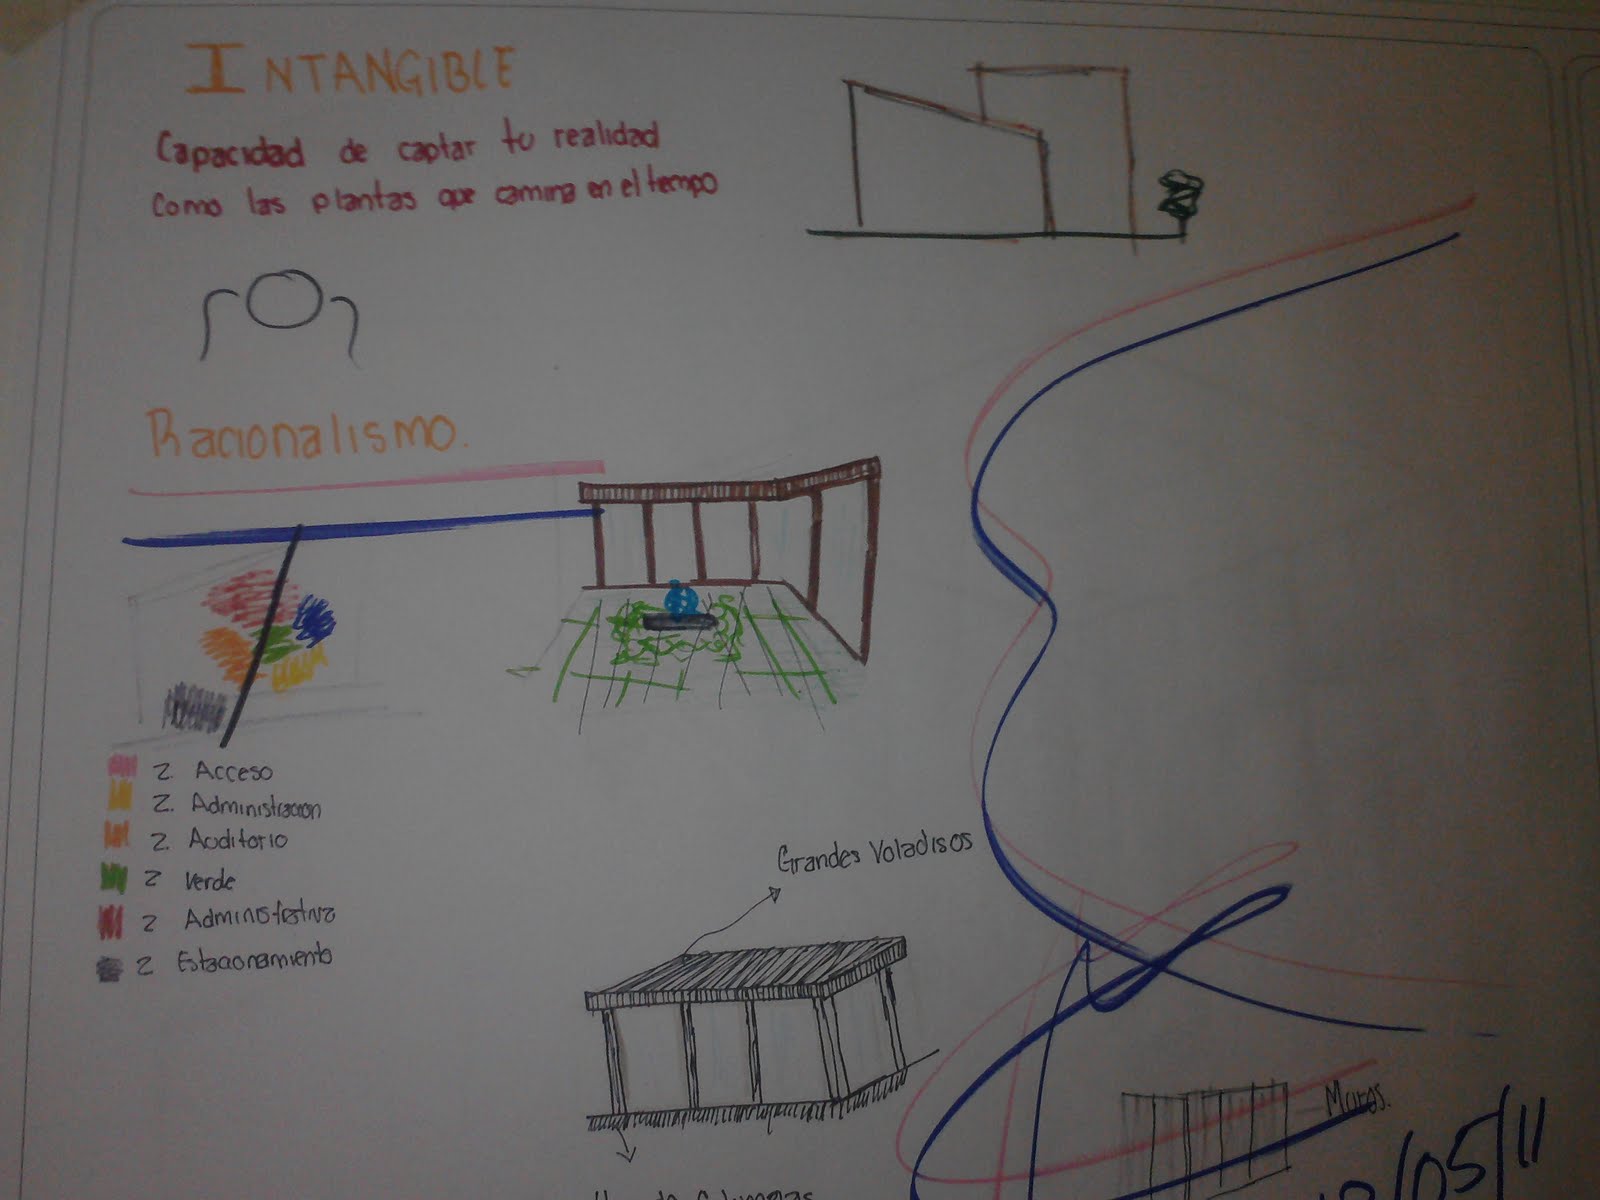 INTANGIBLE
Capacidad de captar tu realidad
como las plantas que camina en el tempo
Racionalismo.
Z. Acceso
Z. Administracion
Z. Auditorio
Z Verde
Z Administrativa
Z Estacionamiento
Grandes Voladisos
Muros.
/05/11